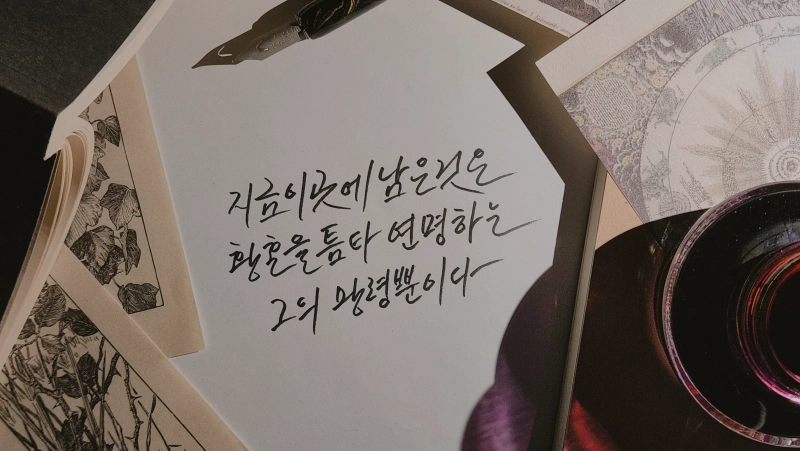 지금 이곳에 남은 것은
황혼을 틈타 연명하는
그의 망령뿐이다